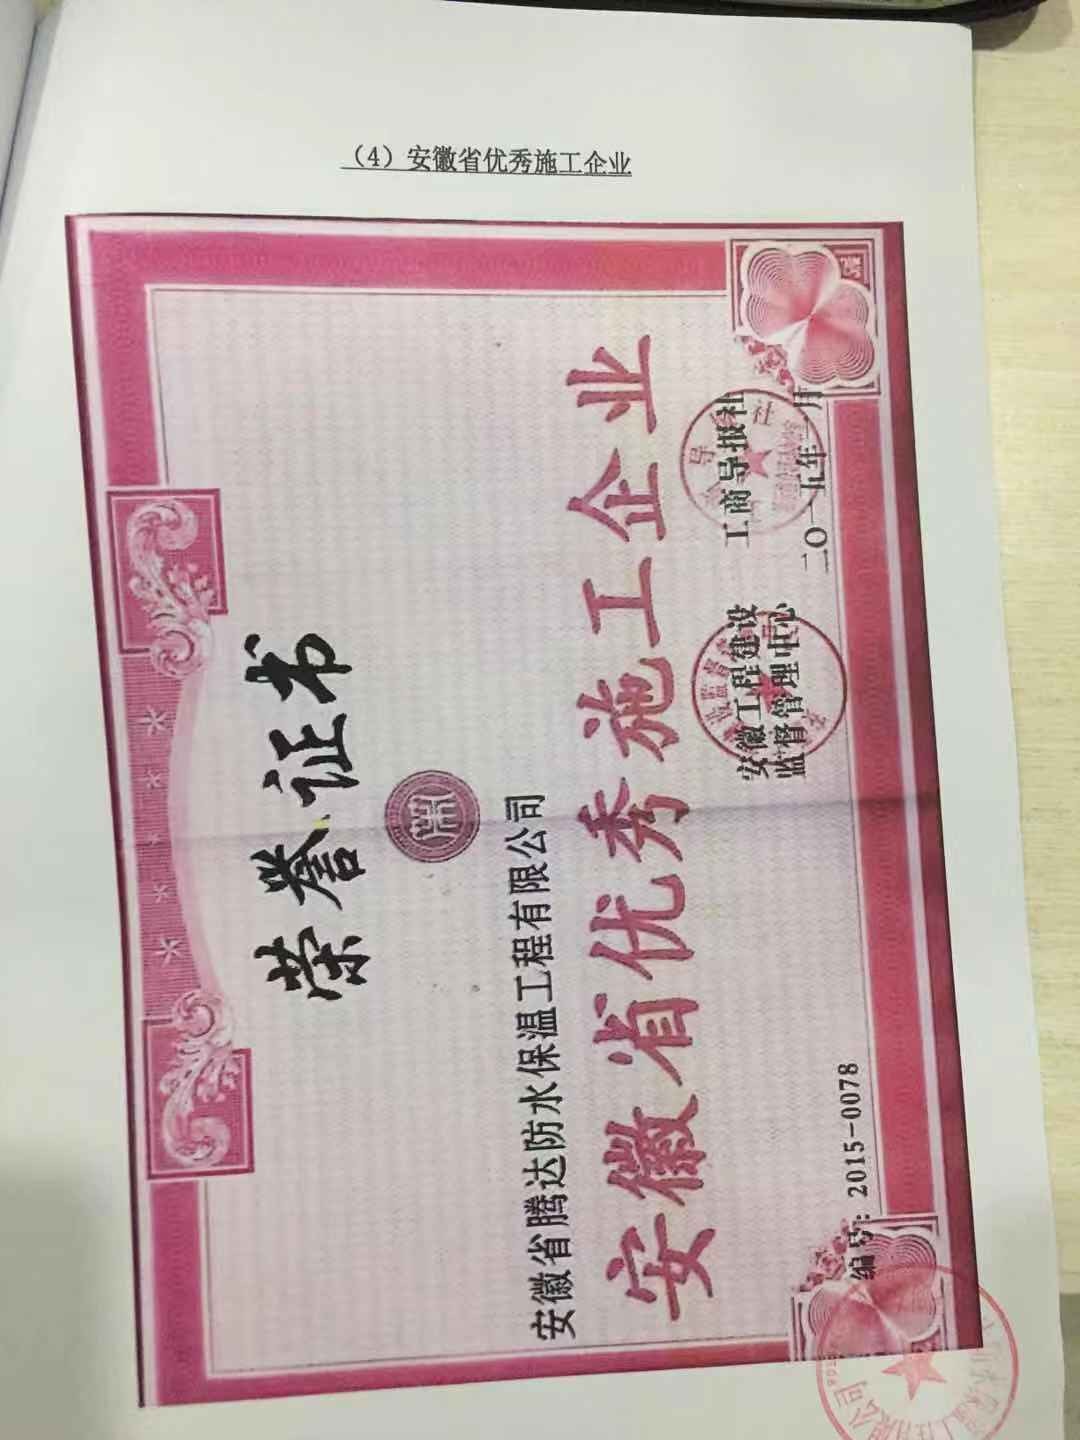 （4）安徽省优秀施工企业
荣誉证书
安徽省腾达防水保温工程有限公司
安徽省优秀施工企业
安徽工程建设
监督管理中心
工商导报社
二〇一五年一月
编号：2015-0078